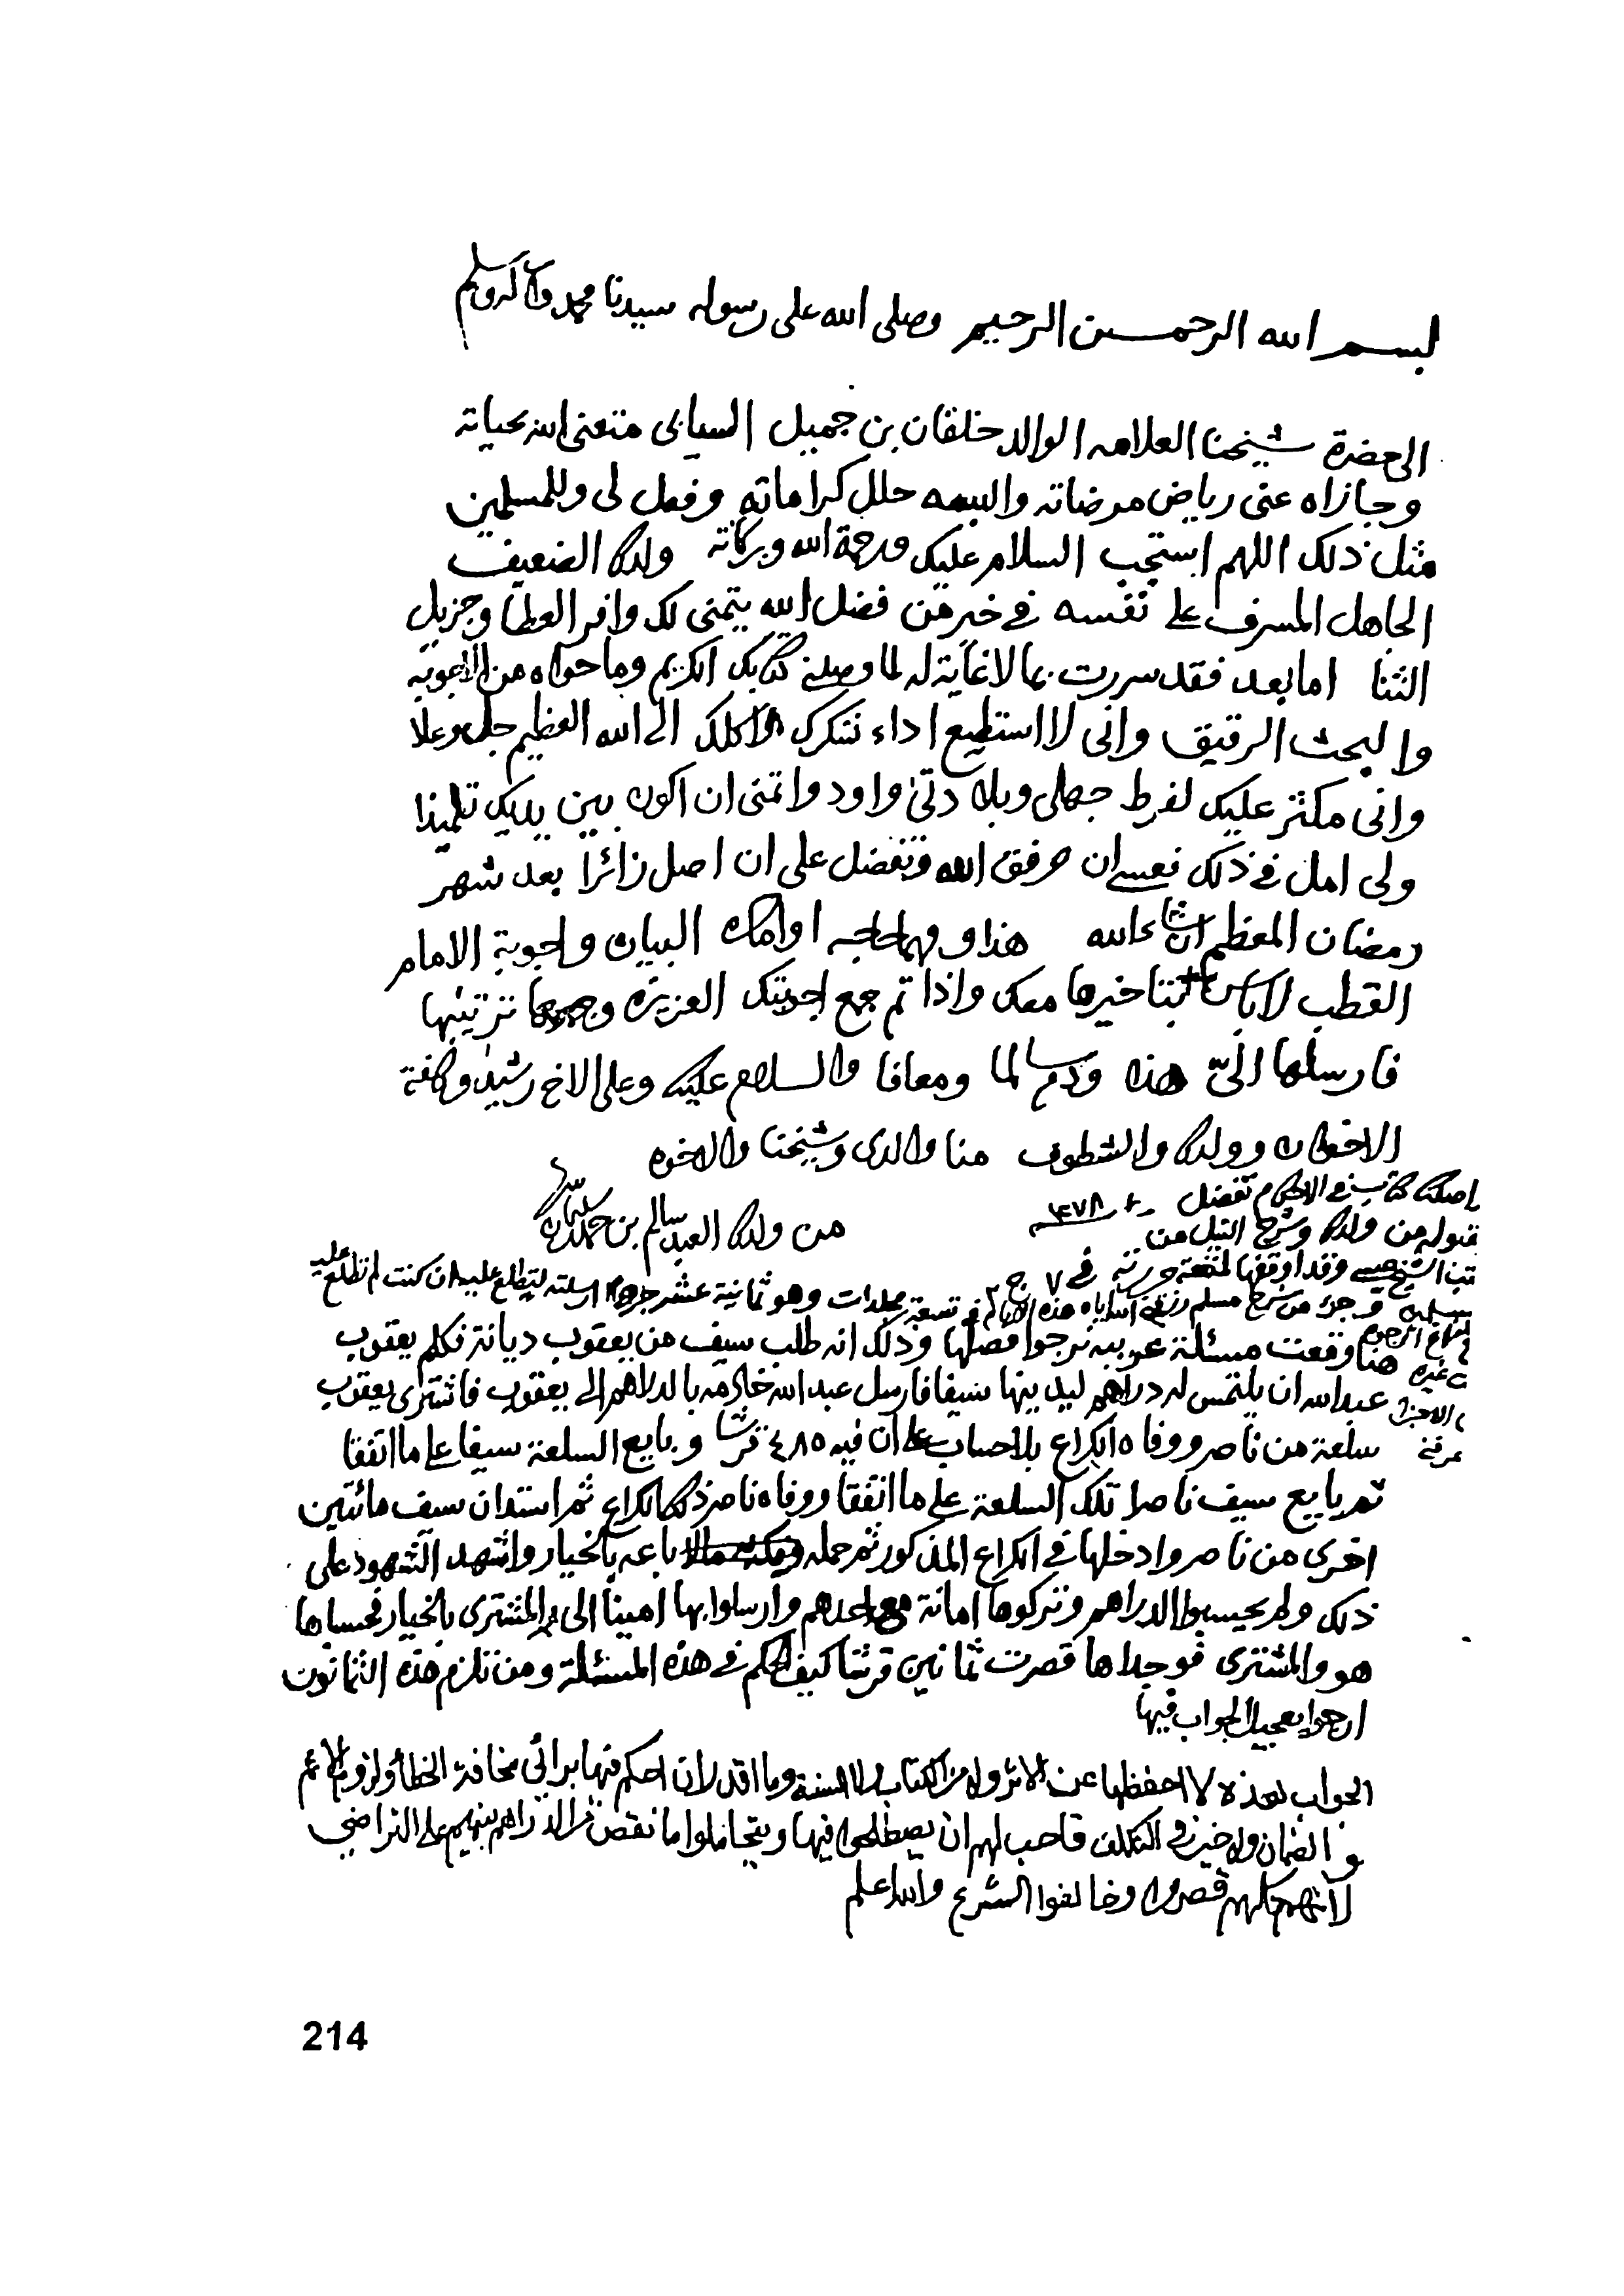 بسم الله الرحمن الرحيم وصلى الله على رسوله سيدنا محمد وآله وسلم
الى حضرة شيخنا العلامه الوالد خلفان بن جميل السيابى متعنى الله بحياته
وجازاه عنى رياض مرضاته والبسه حلل كراماته وفعل لى وللمسلمين
مثل ذلك اللهم استجب السلام عليك ورحمة الله وبركاته ولدك الضعيف
الجاهل المسرف على نفسه في خير من فضل الله يتمنى لك وافر العطا وجزيل
الثنا اما بعد فقد سررت بما لا غاية له لما وصلني كتابك الكريم وما حواه من الاجوبه
والبحث الرقيق وانى لا استطيع اداء شكرك الله العظيم جل وعلا
وانى مكثر عليك لفرط جهلى وبلادتى واود واتمنى ان اكون بين يديك تلميذا
ولى امل في ذلك فعسى ان وفق الله وتفضل على ان اصل زائرا بعد شهر
رمضان المعظم ان شاء الله هذا ومهما حاجه اوامك البيان واجوبة الامام
القطب لا باس بتاخيرها معك واذا تم جمع اجوبتك العزيزه ترتيبها
فارسلها الىّ هذا ودم سالما ومعافا والسلام عليك وعلى الاخ رشيد وكافة
الاخوان وولدك والشطوف منا والدى وشيخنا والاخوه
من ولدك العبد سالم بن حمد
كتاب في الاحكام تفضل
قبوله من ولدك وشرح النيل من
الشيخ وقد اوقفها
وجزء من شرح مسلم في تسعة مجلدات وهو ثمانية عشر جزءا ارسلته لتطلع عليه ان كنت لم تطلع عليه
هنا وقعت مسئلة نرجوا فصلها وذلك انه طلب سيف من يعقوب ديانة فكلم يعقوب
عبدالله ان يلتمس له دراهم ليدينها سيفا فارسل عبدالله خادمه بالدراهم الى يعقوب فاشترى يعقوب
سلعة من ناصر ووفاه الكراع بلا حساب على ان فيه ٤٨٥ قرشا وبايع السلعة سيفا على ما اتفقا
ثم بايع سيف ناصرا تلك السلعة على ما اتفقا ووفاه ناصر ذلك الكراع ثم استدان سيف مائتين
اخرى من ناصر وادخلها في الكراع المذكور ثم حمله باعه بالخيار واشهد الشهود على
ذلك ولم يحسبوا الدراهم وتركوها امانة مع احدهم وارسلوا بها امينا الى المشترى بالخيار فحسباها
هو والمشترى فوجداها قصرت ثمانين قرشا كيف الحكم في هذه المسئلة ومن تلزم هذه الثمانون
ارجوا تعجيل الجواب فيها
الجواب هذه لا احفظها عن الاثر ولا من الكتاب ولا السنة وما اقدر ان احكم فيها برائى مخافة الخطأ ولزوم الاثم
والضمان ولا خير في التكلف فاحب لهم ان يصطلحوا فيها ويتحاملوا ما نقص من الدراهم بينهم على التراضي
لانهم كلهم قصروا وخالفوا الشرع والله اعلم
214